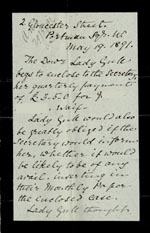 2 Gloucester Street
Portman Sqre. W
May 19. 1891.
The Dowr. Lady Gull
begs to enclose to the Secretary
her quarterly payment
of £3.5.0 for J.
Waif.
Lady Gull would also
be greatly obliged if the
Secretary would inform
her, whether it would
be likely to be of any
avail. inserting in
their Monthly Paper
the enclosed case.
Lady Gull thought